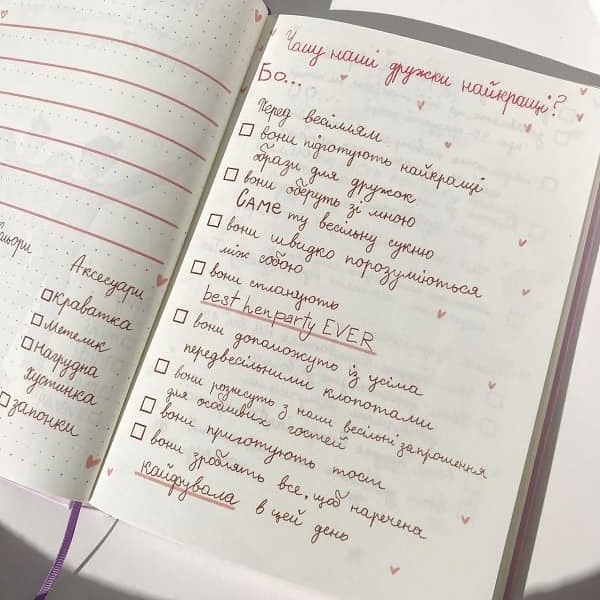 Аксесуари
краватка
метелик
нагрудна
хустинка
запонки
Чому наші дружки найкращі?
Бо...
Перед весіллям
вони підготують найкращі
образи для дружок
вони оберуть зі мною
САМЕ ту весільну сукню
вони швидко порозуміються
між собою
вони спланують
best henparty EVER
вони допоможуть із усіма
передвесільними клопотами
вони рознесуть з наши весільні запрошення
для особливих гостей
вони приготують тост
вони зроблять все, щоб наречена
кайфувала в цей день